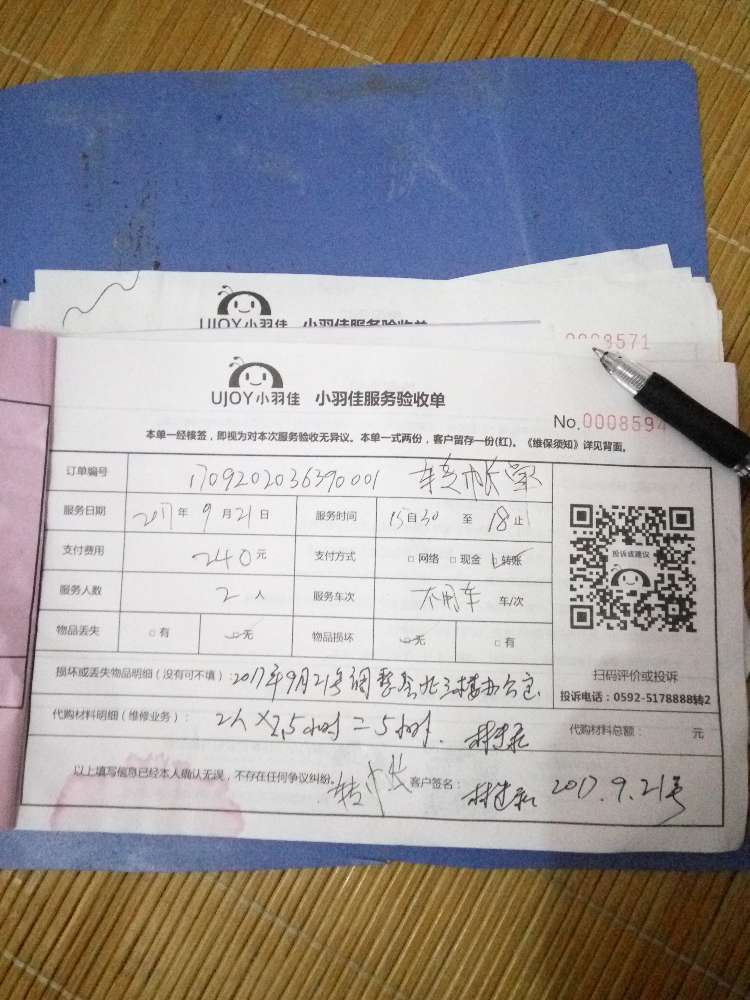 UJOY小羽佳 小羽佳服务验收单
0008571
UJOY小羽佳 小羽佳服务验收单
No.0008594
本单一经核签，即视为对本次服务验收无异议。本单一式两份，客户留存一份(红)。《维保须知》详见背面。
订单编号 1709202036390001 转帐
服务日期 2017年9月21日 服务时间 15自30至18止
支付费用 240元 支付方式 □网络 □现金 □转账
投诉或建议
服务人数 2人 服务车次 不用车 车/次
物品丢失 □有 □无 物品损坏 □无 □有
扫码评价或投诉
损坏或丢失物品明细（没有可不填）：2017年9月21号调整 三楼办公室
投诉电话：0592-5178888转2
代购材料明细（维修业务）：2人×2.5小时=5小时. 代购材料总额： 元
以上填写信息已经本人确认无误，不存在任何争议纠纷。 转 客户签名： 2017.9.21号